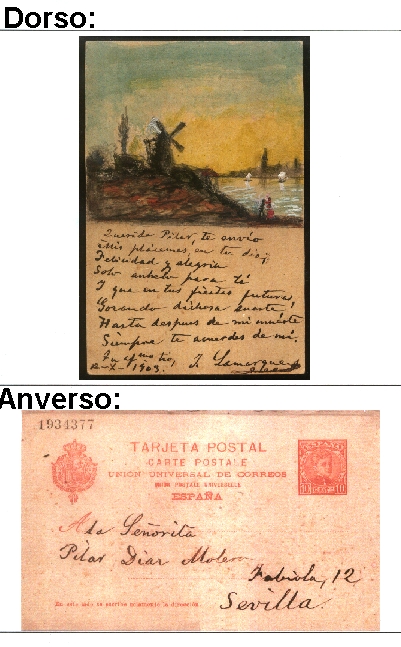 Dorso:
Querida Pilar, te envío
mis plácemes en tu día,
Felicidad y alegria
Solo anhelo para tí
I que en tus fiestas futuras
Gozando dichosa suerte!
Hasta despues de mi muerte
Siempre te acuerdes de mi.
Tu afmo tio, J. Lamarque
12-X-1903.
Anverso:
1934377
TARJETA POSTAL
CARTE POSTALE
UNIÓN UNIVERSAL DE CORREOS
UNION POSTALE UNIVERSELLE
ESPAÑA
A la Señorita
Pilar Diaz Molero
Fabiola, 12
Sevilla.
En este lado se escribe solamente la dirección.